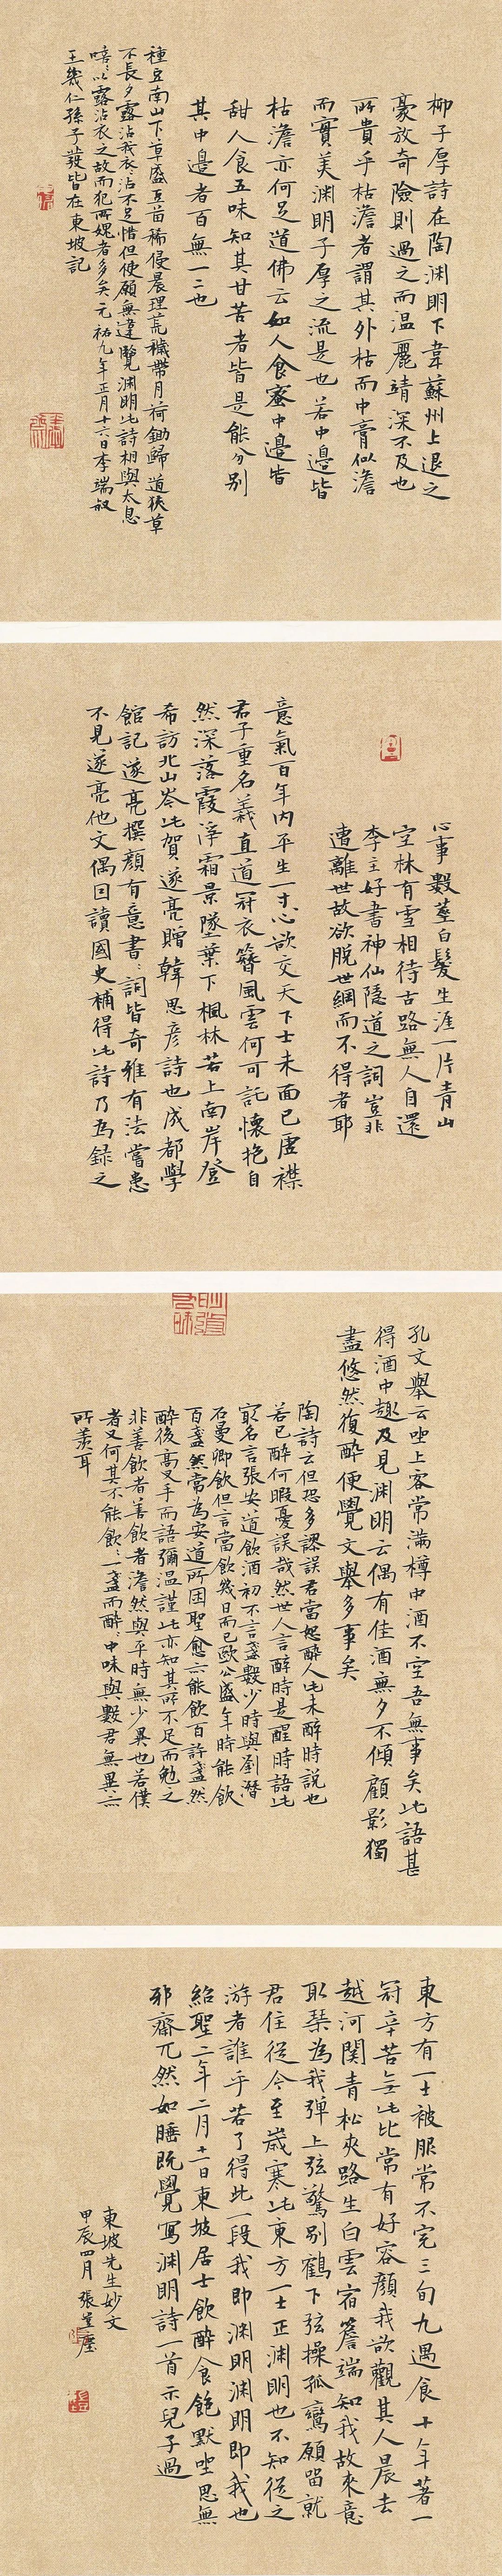 柳子厚詩在陶淵明下韋蘇州上退之
豪放奇險則過之而溫麗靖深不及也
所貴乎枯澹者謂其外枯而中膏似澹
而實美淵明子厚之流是也若中邊皆
枯澹亦何足道佛云如人食蜜中邊皆
甜人食五味知其甘苦者皆是能分別
其中邊者百無一二也
種豆南山下草盛豆苗稀侵晨理荒穢帶月荷鋤歸道狹草
木長夕露沾我衣衣沾不足惜但使願無違覽淵明此詩相與太息
嘻嘻以露沾衣之故而犯所媿者多矣元祐九年正月十六日李端叔
王幾仁孫子發皆在東坡記
心事數莖白髮生涯一片青山
空林有雪相待古路無人自還
李主好書神仙隱遁之詞豈非
遭離世故欲脫世網而不得者耶
意氣百年內平生一寸心欲交天下士未面已虛襟
君子重名義直道冠衣簪風雲何可託懷抱自
然深落霞淨霜景墜葉下楓林若上南岸登
希訪北山岑此賀遂亮贈韓思彥詩也成都學
館記遂亮撰顏有意書書詞皆奇雅有法嘗患
不見遂亮他文偶因讀國史補得此詩乃為錄之
孔文舉云坐上客常滿樽中酒不空吾無事矣此語甚
得酒中趣及見淵明云偶有佳酒無夕不傾顧影獨
盡悠然復醉便覺文舉多事矣
陶詩云但恐多謬誤君當恕醉人此未醉時說也
若已醉何暇憂誤哉然世人言醉時是醒時語此
最名言張安道飲酒初不言盞數少時與劉潛
石曼卿飲但言當飲幾日而已歐公盛年時能飲
百盞然常為安道所困聖俞亦能飲百許盞然
醉後高叉手而語彌溫謹此亦知其所不足而勉之
非善飲者善飲者澹然與平時無少異也若僕
者又何其不能飲飲一盞而醉醉中味與數君無異亦
所羨耳
東方有一士被服常不完三旬九遇食十年著一
冠辛苦無此比常有好容顏我欲觀其人晨去
越河關青松夾路生白雲宿簷端知我故來意
取琴為我彈上弦驚別鶴下弦操孤鸞願留就
君住從今至歲寒此東方一士正淵明也不知從之
游者誰乎若了得此一段我即淵明淵明即我也
紹聖二年二月十一日東坡居士飲醉食飽默坐思無
邪齋兀然如睡既覺寫淵明詩一首示兒子過
東坡先生妙文
甲辰四月